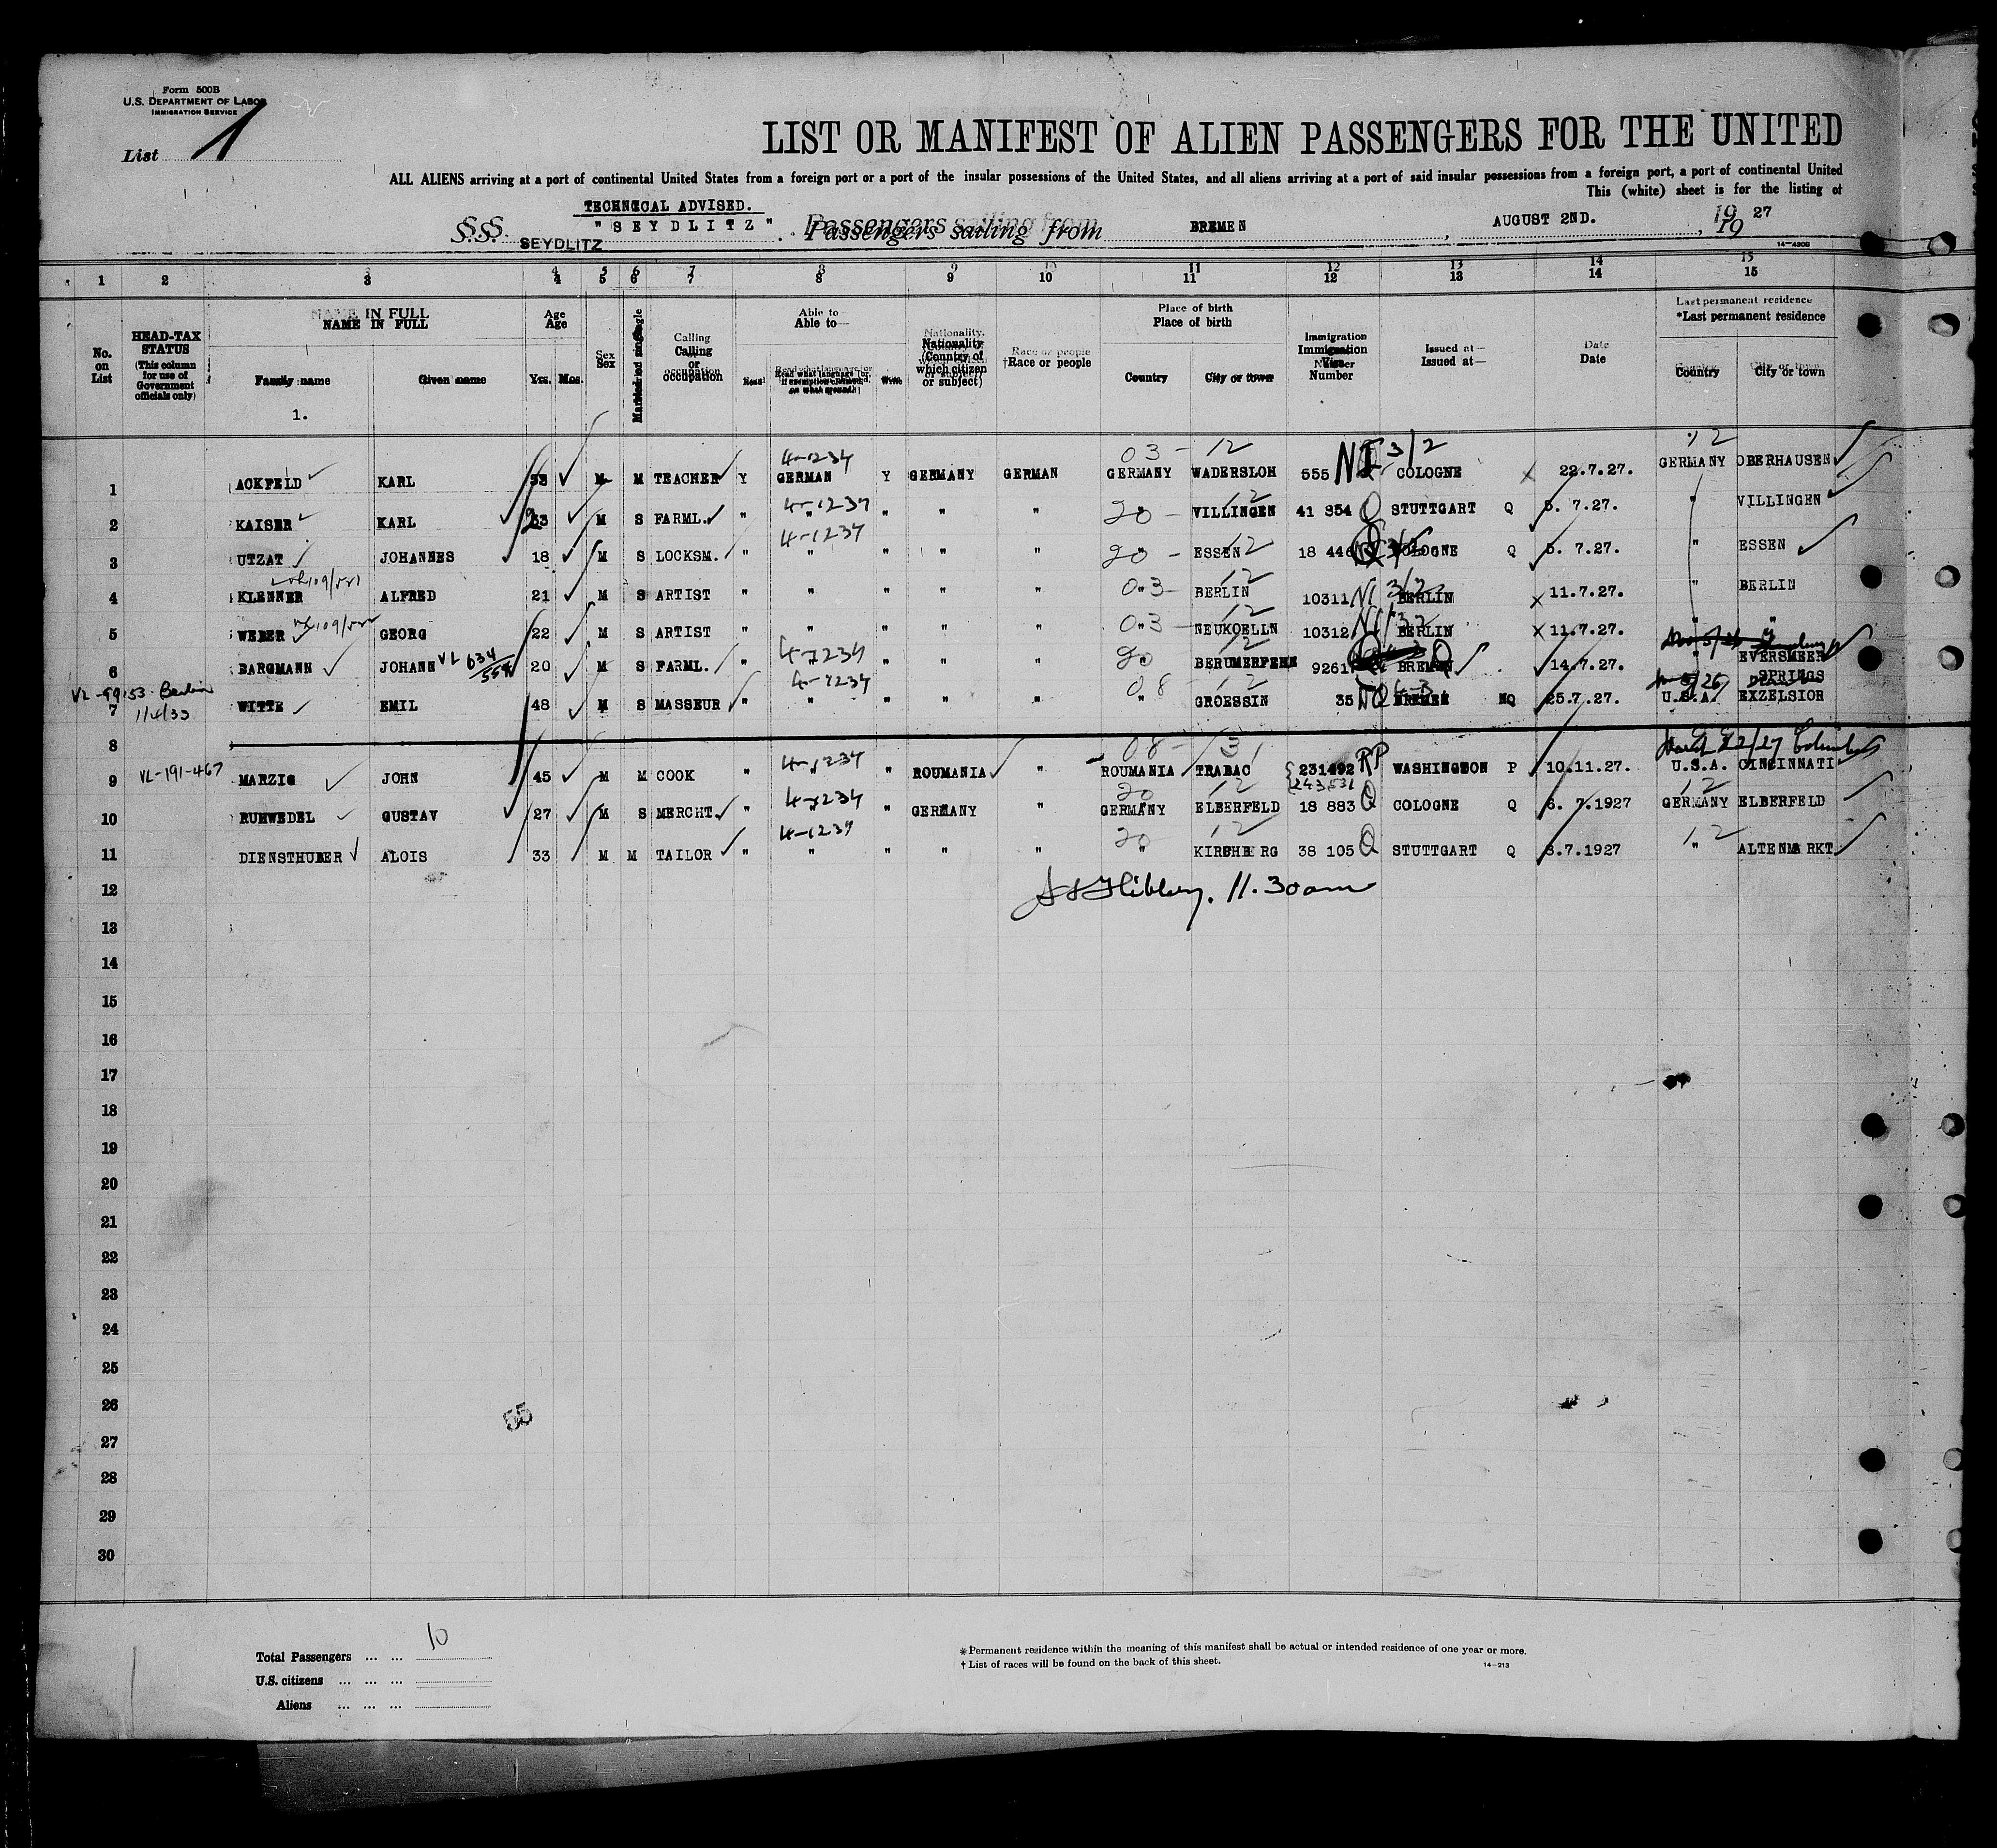 Form 500B
U.S. DEPARTMENT OF LABOR
IMMIGRATION SERVICE
List 1
LIST OR MANIFEST OF ALIEN PASSENGERS FOR THE UNITED
ALL ALIENS arriving at a port of continental United States from a foreign port or a port of the insular possessions of the United States, and all aliens arriving at a port of said insular possessions from a foreign port, a port of continental United
This (white) sheet is for the listing of
TECHNICAL ADVISED.
S.S. "SEYDLITZ" Passengers sailing from BREMEN, AUGUST 2ND., 19 27
SEYDLITZ
14-430B
1 2 3 4 5 6 7 8 9 10 11 12 13 14 15
No. on List
HEAD-TAX STATUS (This column for use of Government officials only)
NAME IN FULL
Family name Given name
Age
Yrs. Mos.
Sex
Married or single
Calling or occupation
Able to—
Read Read what language [or, if exemption claimed, on what ground] Write
Nationality. (Country of which citizen or subject)
†Race or people
Place of birth
Country City or town
Immigration Visa Number
Issued at—
Date
*Last permanent residence
Country City or town
1.
4-1234 03-12 3/2 12
1 ACKFELD KARL 53 M M TEACHER Y GERMAN Y GERMANY GERMAN GERMANY WADERSLOH 555 NI COLOGNE 22.7.27. GERMANY OBERHAUSEN
4-1234 12
2 KAISER KARL 23 M S FARML. " " " " " 20 - VILLINGEN 41 854 Q STUTTGART Q 5. 7.27. " VILLINGEN
4-1234
3 UTZAT JOHANNES 18 M S LOCKSM. " " " " " 20 - ESSEN 12 18 446 Q COLOGNE Q 5. 7.27. " ESSEN
12
4 KLENNER ALFRED 21 M S ARTIST " " " " " 03- BERLIN 10311 NI 3/2 BERLIN 11.7.27. " BERLIN
12
5 WEBER GEORG 22 M S ARTIST " " " " " 03- NEUKOELLN 10312 NI BERLIN 11.7.27. " "
4-1234 12
6 BARGMANN JOHANN VL 634/554 20 M S FARML. " " " " " 20 BERUMERFEHN 9261 BREMEN Q 14.7.27. " EVERSMEER
VL-99153 Berlin 4-1234 08 - 12 SPRINGS
7 11/4/33 WITTE EMIL 48 M S MASSEUR " " " " " " GROESSIN 35 NQ BREMEN NQ 25.7.27. U.S.A. EXZELSIOR
8
VL-191-467 4-1234 08- 31
9 MARZIG JOHN 45 M M COOK " " ROUMANIA " ROUMANIA TRABAC 231492 RP WASHINGTON P 10.11.27. U.S.A. CINCINNATI
4-1234 20 12 243,531 12
10 RUHWEDEL GUSTAV 27 M S MERCHT. " " GERMANY " GERMANY ELBERFELD 18 883 Q COLOGNE Q 6. 7.1927 GERMANY ELBERFELD
4-1234 20 12 12
11 DIENSTHUBER ALOIS 33 M M TAILOR " " " " " " KIRCHBERG 38 105 Q STUTTGART Q 8.7.1927 " ALTENMARKT
12 11.30am
13
14
15
16
17
18
19
20
21
22
23
24
25
26 55
27
28
29
30
10
Total Passengers ... ...
U.S. citizens ... ... ...
Aliens ... ... ...
*Permanent residence within the meaning of this manifest shall be actual or intended residence of one year or more.
†List of races will be found on the back of this sheet.
14-213